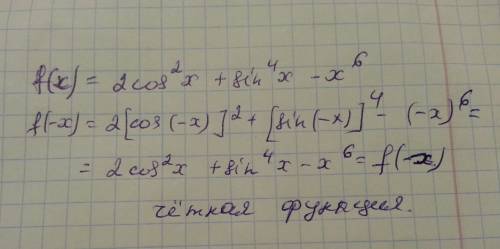 f(x) = 2cos²x + sin⁴x - x⁶
f(-x) = 2[cos(-x)]² + [sin(-x)]⁴ - (-x)⁶ =
= 2cos²x + sin⁴x - x⁶ = f(-x)
чётная функция.